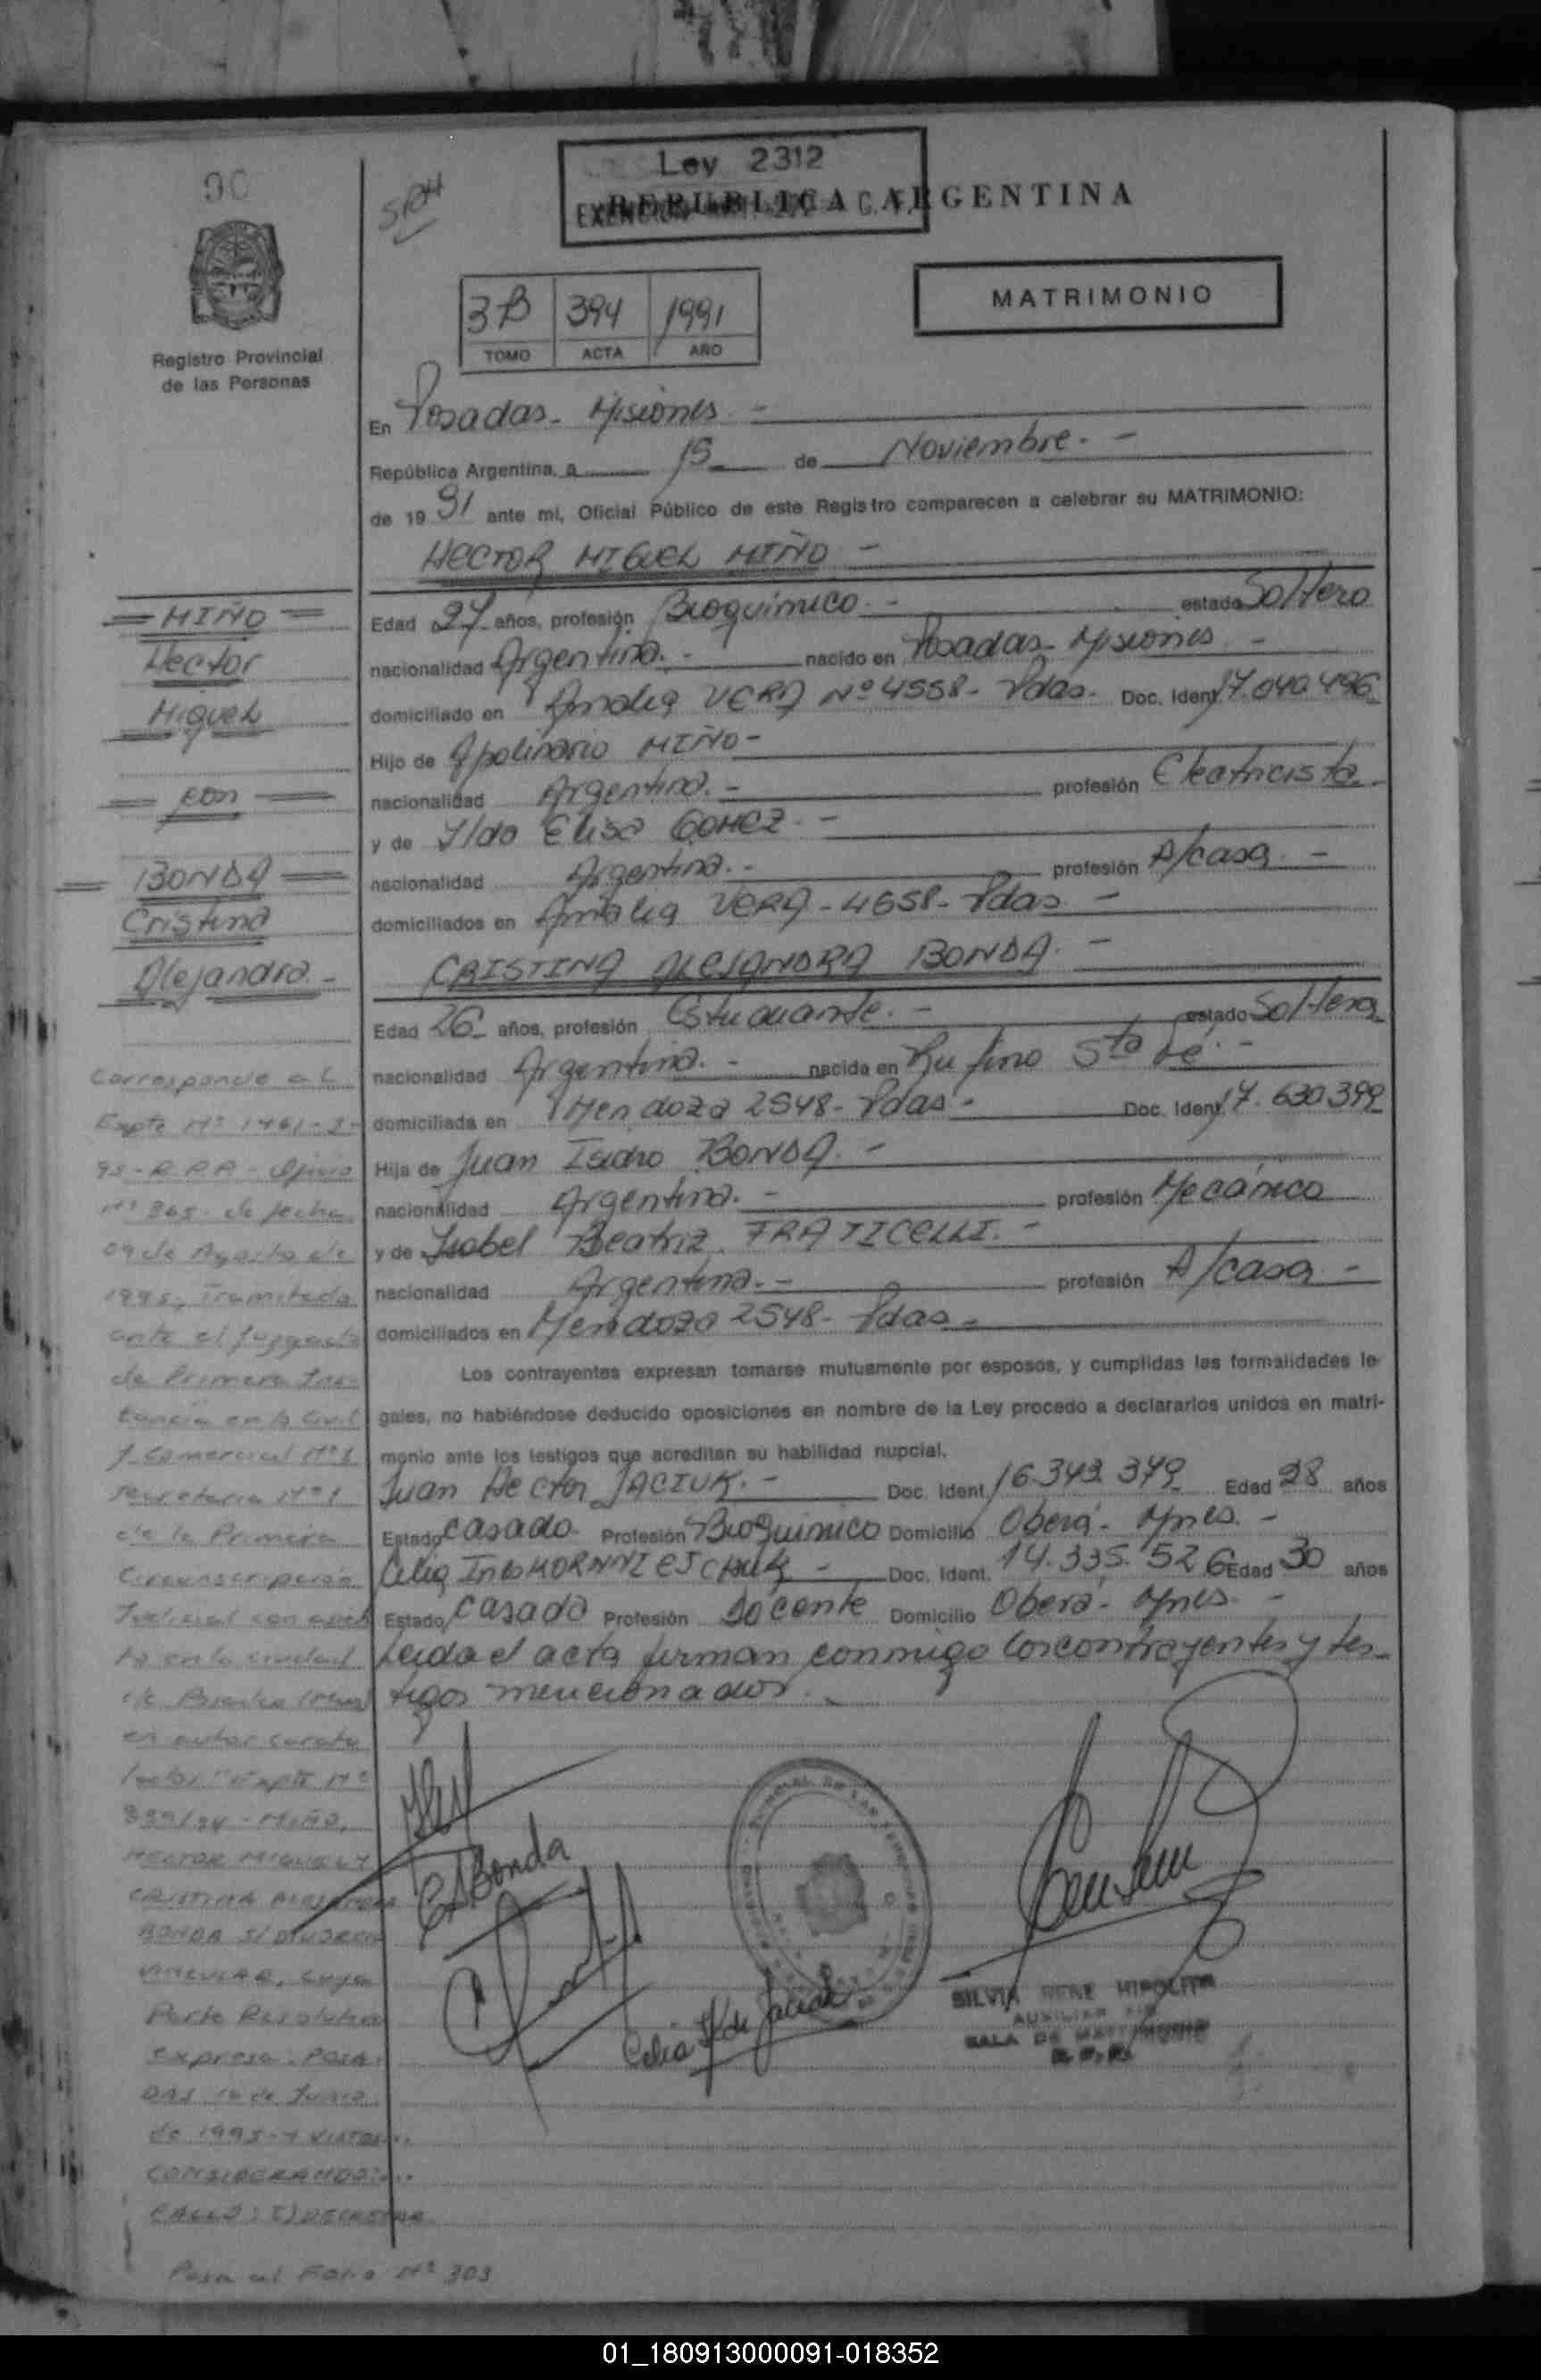 90
Ley 2312
REPUBLICA ARGENTINA
MATRIMONIO
3B 394 1991
TOMO ACTA AÑO
Registro Provincial
de las Personas
En Posadas - Misiones -
República Argentina, a 15 de Noviembre. -
de 19 91 ante mí, Oficial Público de este Registro comparecen a celebrar su MATRIMONIO:
HECTOR MIGUEL MIÑO -
Edad 27 años, profesión Bioquímico. - estado Soltero
nacionalidad Argentina. - nacido en Posadas - Misiones -
domiciliado en Amalia VERA Nº 4558 - Pdas. Doc. Ident. 17.040.496
Hijo de Apolinario MIÑO -
nacionalidad Argentina. - profesión Electricista
y de Ilda Elisa GOMEZ. -
nacionalidad Argentina. - profesión A/casa. -
domiciliados en Amalia VERA - 4658 - Pdas -
CRISTINA ALEJANDRA BONDA. -
Edad 26 años, profesión Estudiante. - estado Soltera
nacionalidad Argentina. - nacida en Rufino Sta Fé. -
domiciliada en Mendoza 2548 - Pdas - Doc. Ident. 17.630.399
Hija de Juan Isidro BONDA. -
nacionalidad Argentina. - profesión Mecánico
y de Isabel Beatriz FRATICELLI. -
nacionalidad Argentina. - profesión A/casa -
domiciliados en Mendoza 2548 - Pdas -
Los contrayentes expresan tomarse mutuamente por esposos, y cumplidas las formalidades le-
gales, no habiéndose deducido oposiciones en nombre de la Ley procedo a declararlos unidos en matri-
monio ante los testigos que acreditan su habilidad nupcial.
Juan Hector JACIUK. - Doc. Ident. 16.343.379 Edad 28 años
Estado casado Profesión Bioquimico Domicilio Oberá - Mnes. -
Celia Ines Doc. Ident. 14.335.526 Edad 30 años
Estado casada Profesión Docente Domicilio Oberá - Mnes. -
Leida el acta firman conmigo los contrayentes y tes-
tigos mencionados. -
= MIÑO =
Hector
Miguel
= con =
= BONDA =
Cristina
Alejandra -
Corresponde al
Expte Nº 1461-
95 - R.P.P. - Oficio
Nº 865 - de fecha
09 de Agosto de
1995, Tramitado
ante el Juzgado
de Primera Ins-
tancia en lo Civil
y Comercial Nº 1
Secretaria Nº 1
de la Primera
Circunscripción
Judicial con asien
to en la ciudad
de Posadas
en autos caratu
lados "Expte Nº
839/94 - MIÑO,
HECTOR MIGUEL Y
CRISTINA ALEJANDRA
BONDA S/ DIVORCIO
VINCULAR, cuya
Parte Resolutiva
Expresa: POSA-
DAS de Junio
de 1995 - Y VISTOS...
CONSIDERANDO:...
FALLO: I) DECRETAR
Pasa al Folio Nº 303
CABonda
Celia K de Jaciuk
SILVIA RENE HIPOLITO
SALA DE MATRIMONIO
01_180913000091-018352